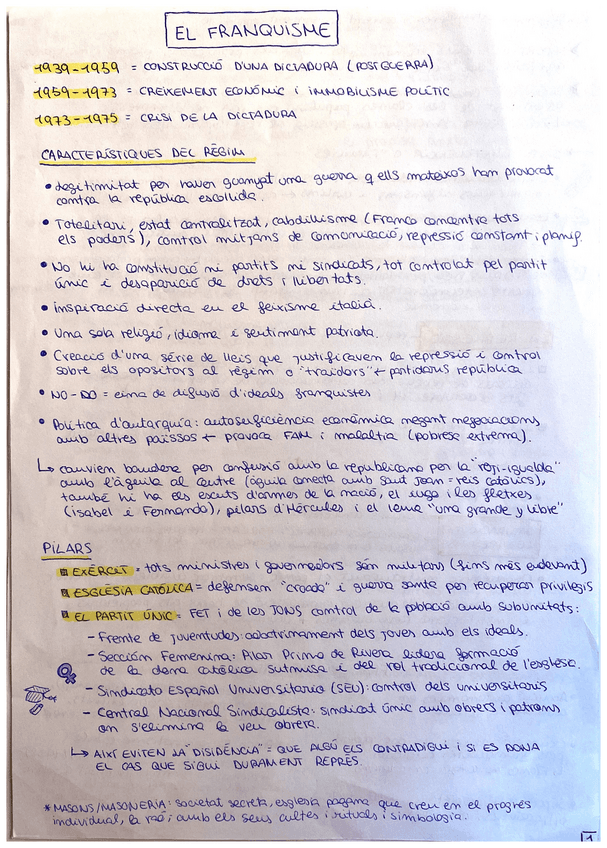 EL FRANQUISME
1939-1959 = CONSTRUCCIÓ D'UNA DICTADURA (POSTGUERRA)
1959-1973 = CREIXEMENT ECONÒMIC i IMMOBILISME POLÍTIC
1973-1975 = CRISI DE LA DICTADURA
CARACTERÍSTIQUES DEL RÈGIM
• Legitimitat per haver guanyat una guerra q ells mateixos han provocat
contra la república escollida.
• Totalitari, estat centralitzat, cabdillisme (Franco concentra tots
els poders), control mitjans de comunicació, repressió constant i planif.
• No hi ha constitució ni partits ni sindicats, tot controlat pel partit
únic i desaparició de drets i llibertats.
• inspiració directa en el feixisme italià.
• Una sola religió, idioma i sentiment patriota.
• Creació d'una sèrie de lleis que justificaven la repressió i control
sobre els opositors al règim o "traïdors" + partidaris república
• NO-DO = eina de difusió d'ideals franquistes
• Política d'autarquia: autosuficiència econòmica negant negociacions
amb altres països + provoca FAM i malaltia (pobresa extrema).
↳ canvien bandera per confusió amb la republicana per la "roji-igualda"
amb l'àguila al centre (àguila conecta amb Sant Joan = reis catòlics),
també hi ha els escuts d'armes de la nació, el iugo i les fletxes
(isabel i Fernando), pilars d'Hércules i el lema "una grande y libre"
PILARS
EXÈRCIT = tots ministres i governadors són militars (fins més endavant)
ESGLÉSIA CATÒLICA = defensen "croada" i guerra santa per recuperar privilegis
EL PARTIT ÚNIC = FET i de les JONS control de la població amb subunitats:
- Frente de juventudes: adoctrinament dels joves amb els ideals.
- Sección Femenina: Pilar Primo de Rivera lidera formació
de la dona catòlica sutmisa i del rol tradicional de l'església.
- Sindicato Español Universitario (SEU): control dels universitaris
- Central Nacional Sindicalista: sindicat únic amb obrers i patrons
on s'elimina la veu obrera.
↳ AIXÍ EVITEN LA "DISIDÈNCIA" = QUE ALGÚ ELS CONTRADIGUI i SI ES DONA
EL CAS QUE SIGUI DURAMENT REPRÈS.
*MASONS/MASONERIA: societat secreta, església pagana que creu en el progrés
individual, la raó i amb els seus cultes i rituals i simbologia.
1